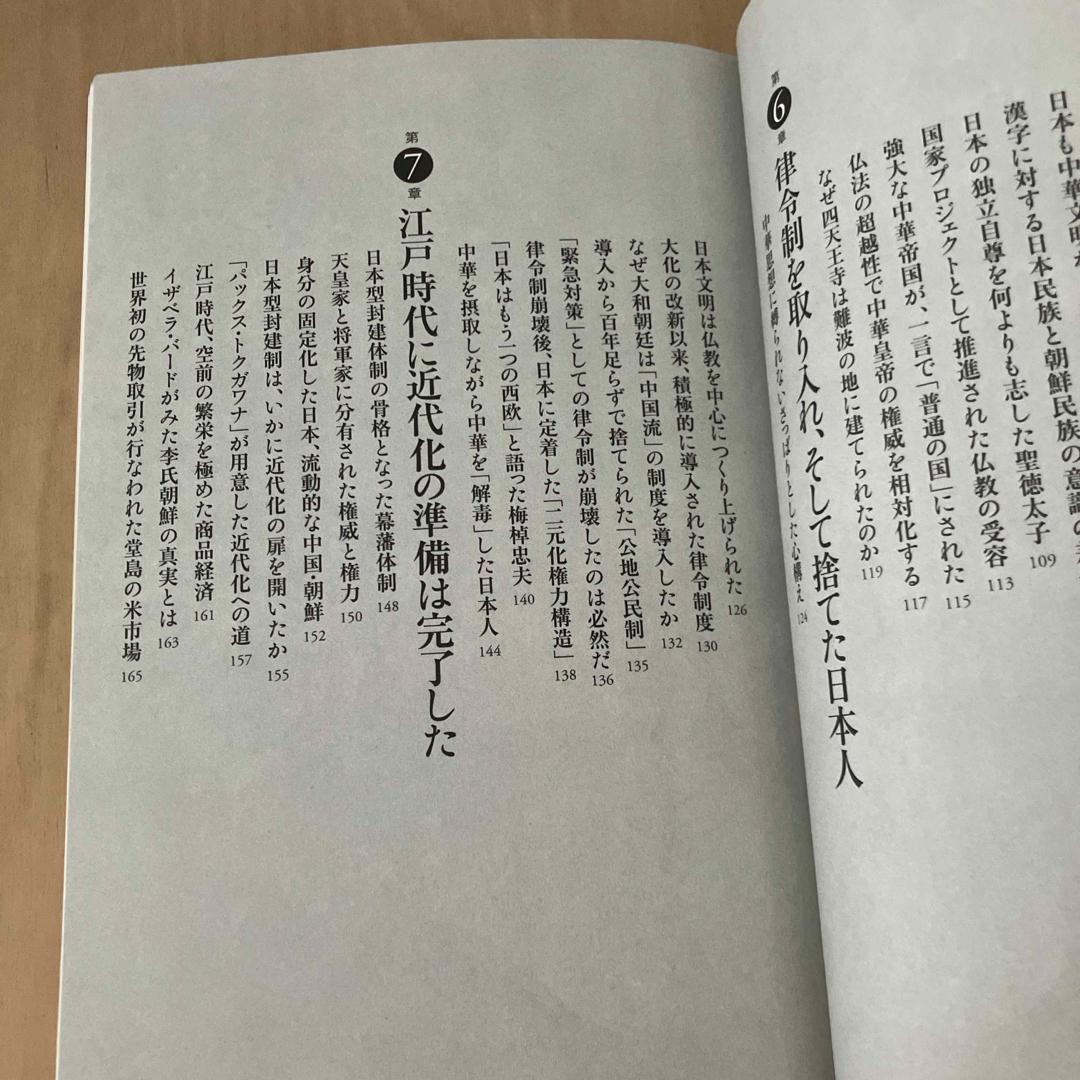 日本も中華文明
漢字に対する日本民族と朝鮮民族の意識の
日本の独立自尊を何よりも志した聖徳太子 109
国家プロジェクトとして推進された仏教の受容 113
強大な中華帝国が、一言で「普通の国」にされた 115
仏法の超越性で中華皇帝の権威を相対化する 117
なぜ四天王寺は難波の地に建てられたのか 119
第6章 律令制を取り入れ、そして捨てた日本人
中華思想に縛られないさっぱりとした心構え 124
日本文明は仏教を中心につくり上げられた 126
大化の改新以来、積極的に導入された律令制度 130
なぜ大和朝廷は「中国流」の制度を導入したか 132
導入から百年足らずで捨てられた「公地公民制」 135
「緊急対策」としての律令制が崩壊したのは必然だ 136
律令制崩壊後、日本に定着した「二元化権力構造」 138
「日本はもう一つの西欧」と語った梅棹忠夫 140
中華を摂取しながら中華を「解毒」した日本人 144
第7章 江戸時代に近代化の準備は完了した
日本型封建体制の骨格となった幕藩体制 148
天皇家と将軍家に分有された権威と権力 150
身分の固定化した日本、流動的な中国・朝鮮 152
日本型封建制は、いかに近代化の扉を開いたか 155
「パックス・トクガワナ」が用意した近代化への道 157
江戸時代、空前の繁栄を極めた商品経済 161
イザベラ・バードがみた李氏朝鮮の真実とは 163
世界初の先物取引が行なわれた堂島の米市場 165